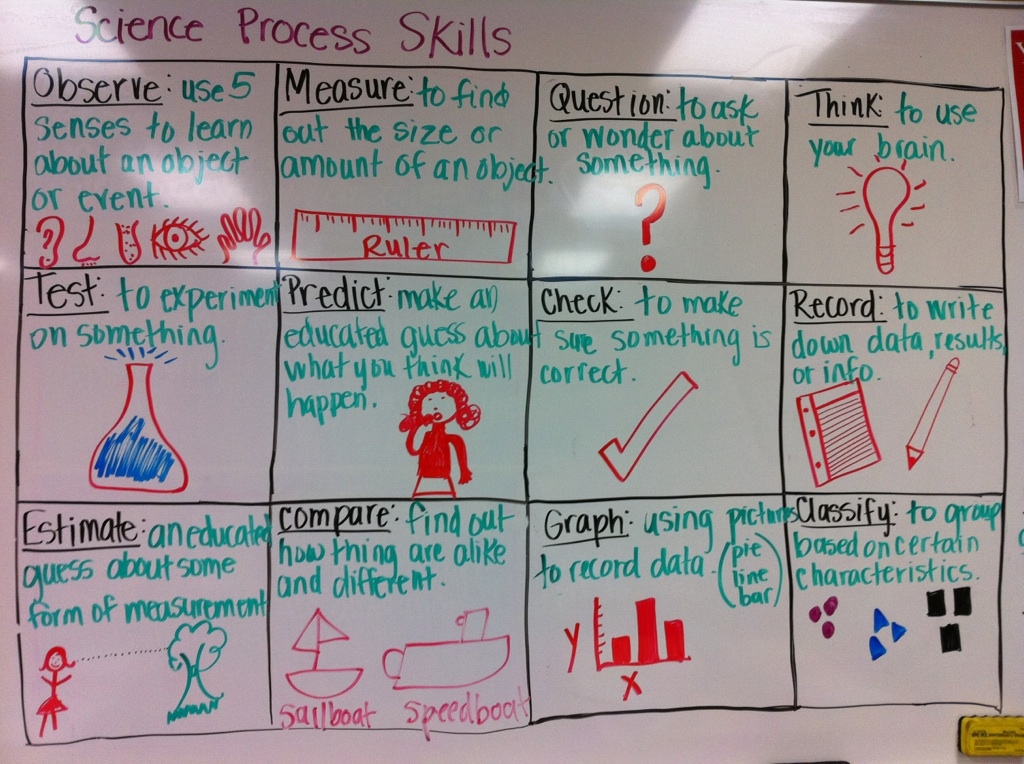 Science Process Skills
Observe: use 5
senses to learn
about an object
or event.
Measure: to find
out the size or
amount of an object.
Ruler
Question: to ask
or wonder about
something.
?
Think: to use
your brain.
Test: to experiment
on something.
Predict: make an
educated guess about
what you think will
happen.
Check: to make
sure something is
correct.
Record: to write
down data, results,
or info.
Estimate: an educated
guess about some
form of measurement
Compare: find out
how thing are alike
and different.
sailboat speedboat
Graph: using pictures
to record data. (pie
line
bar)
Y
X
Classify: to group
based on certain
characteristics.